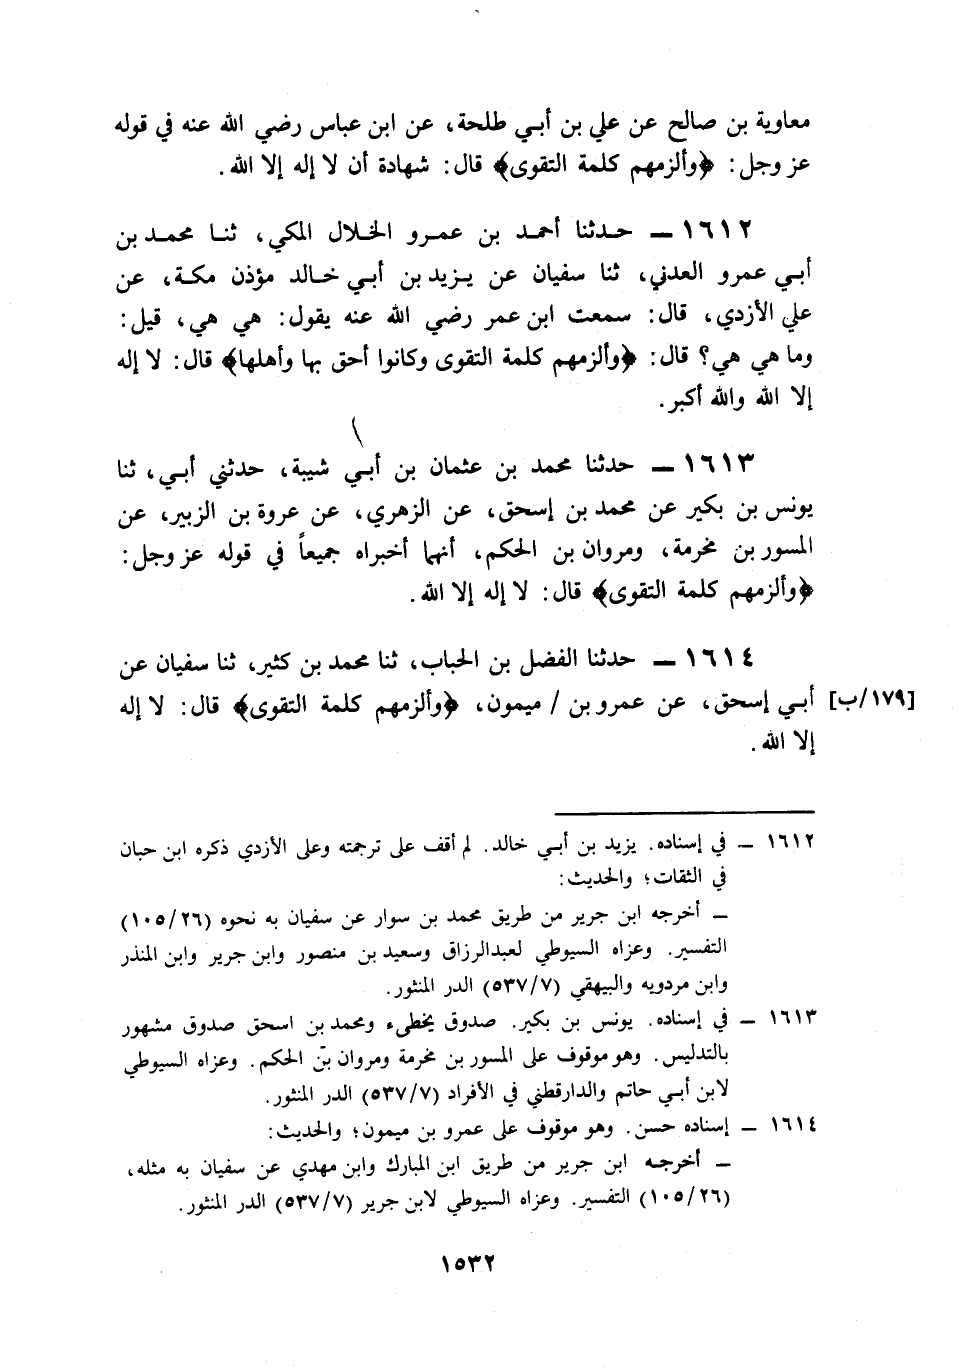 معاوية بن صالح عن علي بن أبي طلحة، عن ابن عباس رضي الله عنه في قوله
عز وجل: ﴿وألزمهم كلمة التقوى﴾ قال: شهادة أن لا إله إلا الله.
١٦١٢ — حدثنا أحمد بن عمرو الخلال المكي، ثنا محمد بن
أبي عمرو العدني، ثنا سفيان عن يزيد بن أبي خالد مؤذن مكة، عن
علي الأزدي، قال: سمعت ابن عمر رضي الله عنه يقول: هي هي، قيل:
وما هي هي؟ قال: ﴿وألزمهم كلمة التقوى وكانوا أحق بها وأهلها﴾ قال: لا إله
إلا الله والله أكبر.
١٦١٣ — حدثنا محمد بن عثمان بن أبي شيبة، حدثني أبي، ثنا
يونس بن بكير عن محمد بن إسحق، عن الزهري، عن عروة بن الزبير، عن
المسور بن مخرمة، ومروان بن الحكم، أنهما أخبراه جميعاً في قوله عز وجل:
﴿وألزمهم كلمة التقوى﴾ قال: لا إله إلا الله.
١٦١٤ — حدثنا الفضل بن الحباب، ثنا محمد بن كثير، ثنا سفيان عن
[١٧٩/ب] أبي إسحق، عن عمرو بن / ميمون، ﴿وألزمهم كلمة التقوى﴾ قال: لا إله
إلا الله.
١٦١٢ — في إسناده. يزيد بن أبي خالد. لم أقف على ترجمته وعلى الأزدي ذكره ابن حبان
في الثقات؛ والحديث:
— أخرجه ابن جرير من طريق محمد بن سوار عن سفيان به نحوه (١٠٥/٢٦)
التفسير. وعزاه السيوطي لعبدالرزاق وسعيد بن منصور وابن جرير وابن المنذر
وابن مردويه والبيهقي (٥٣٧/٧) الدر المنثور.
١٦١٣ — في إسناده. يونس بن بكير. صدوق يخطىء ومحمد بن اسحق صدوق مشهور
بالتدليس. وهو موقوف على المسور بن مخرمة ومروان بن الحكم. وعزاه السيوطي
لابن أبي حاتم والدارقطني في الأفراد (٥٣٧/٧) الدر المنثور.
١٦١٤ — إسناده حسن. وهو موقوف على عمرو بن ميمون؛ والحديث:
— أخرجه ابن جرير من طريق ابن المبارك وابن مهدي عن سفيان به مثله،
(١٠٥/٢٦) التفسير. وعزاه السيوطي لابن جرير (٥٣٧/٧) الدر المنثور.
١٥٣٢